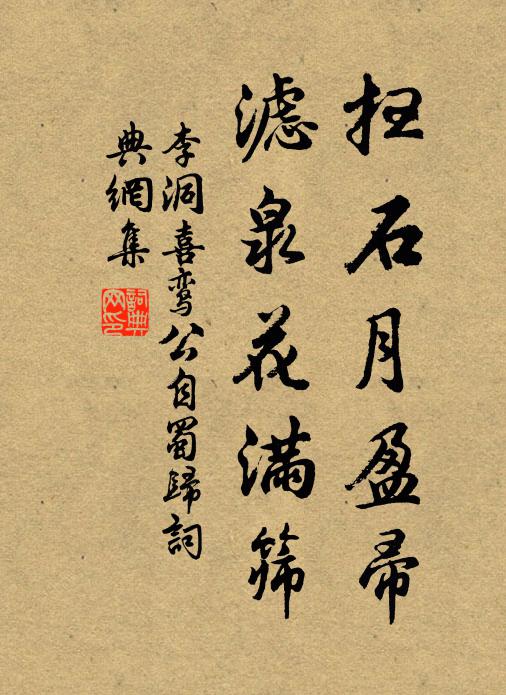 扫石月盈帚
滤泉花满筛
李洞喜鸾公自蜀歸詞
典網集
詞典网印